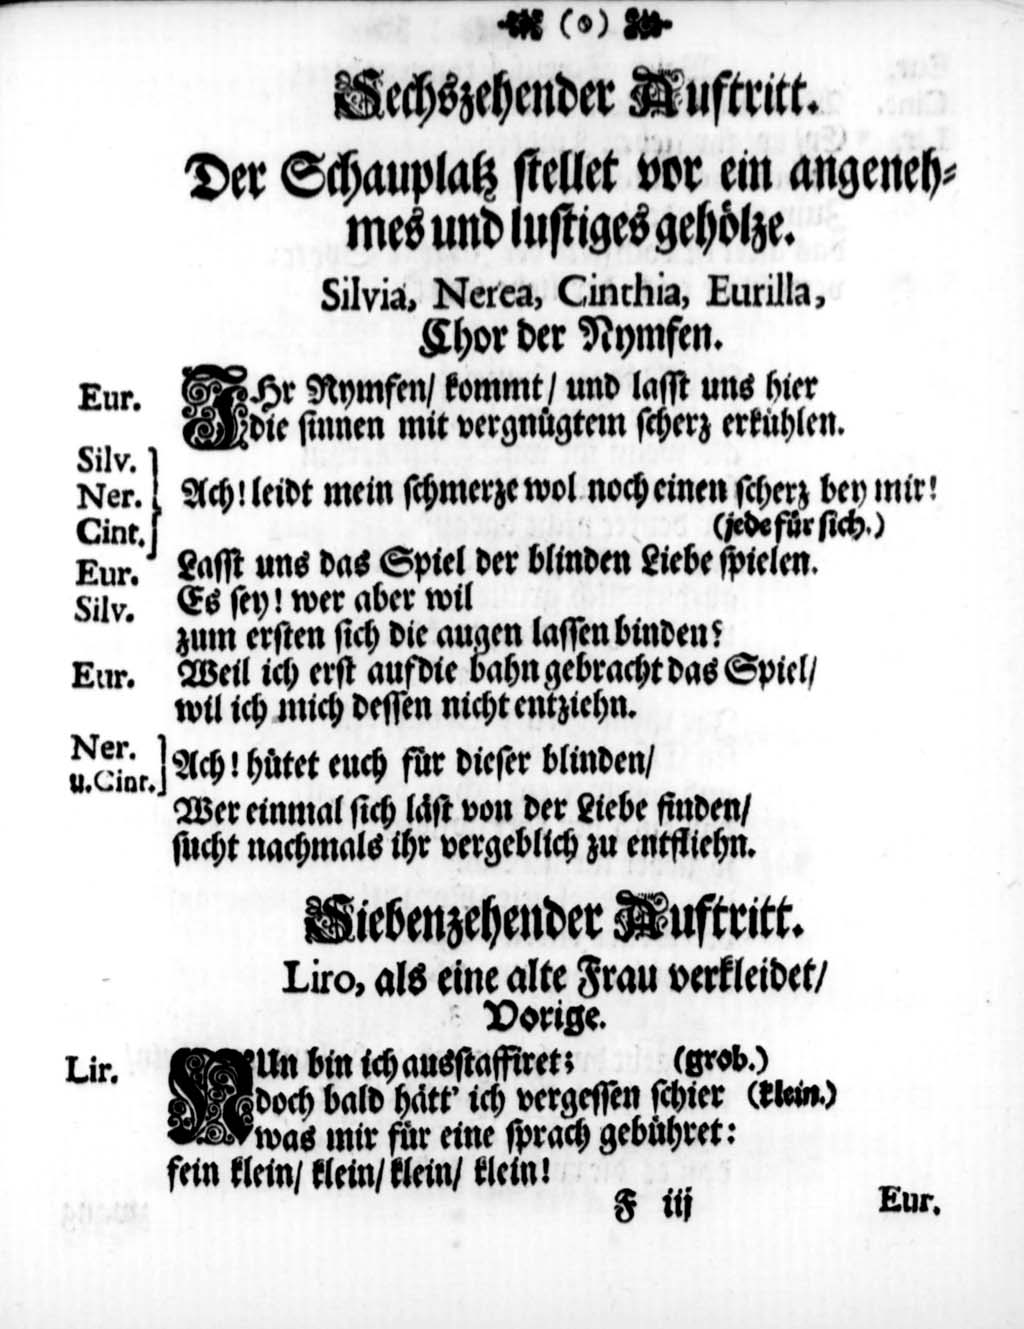 (o)
Sechszehender Auftritt.
Der Schauplatz stellet vor ein angeneh-
mes und lustiges gehölze.
Silvia, Nerea, Cinthia, Eurilla,
Chor der Nymfen.
Eur. IHr Nymfen/ kommt/ und lasst uns hier
die sinnen mit vergnügtem scherz erkühlen.
Silv.
Ner. Ach! leidt mein schmerze wol noch einen scherz bey mir!
Cint. (jede für sich.)
Eur. Lasst uns das Spiel der blinden Liebe spielen.
Silv. Es sey! wer aber wil
zum ersten sich die augen lassen binden?
Eur. Weil ich erst auf die bahn gebracht das Spiel/
wil ich mich dessen nicht entziehn.
Ner.
u. Cint. Ach! hütet euch für dieser blinden/
Wer einmal sich läst von der Liebe finden/
sucht nachmals ihr vergeblich zu entfliehn.
Siebenzehender Auftritt.
Liro, als eine alte Frau verkleidet/
Vorige.
Lir. NUn bin ich ausstaffiret; (grob.)
doch bald hätt' ich vergessen schier (klein.)
was mir für eine sprach gebühret:
fein klein/ klein/ klein/ klein!
F iij Eur.